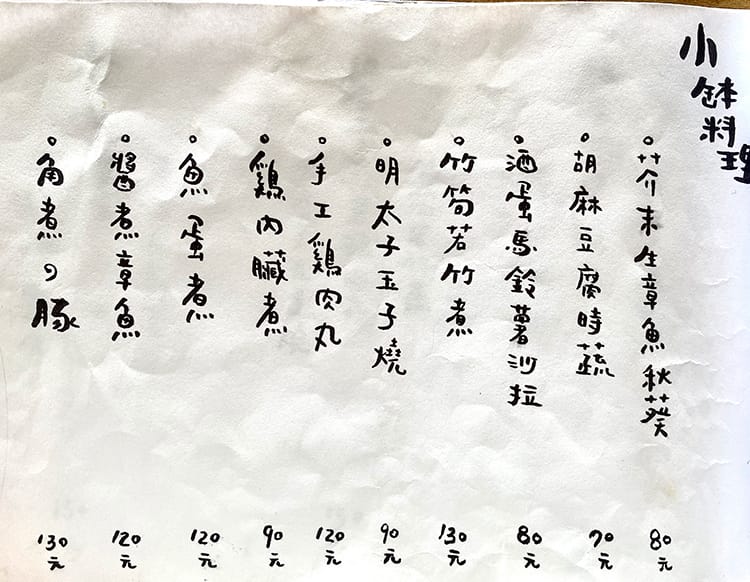 小缽料理
。芥末生章魚秋葵 80元
。胡麻豆腐時蔬 70元
。酒蛋馬鈴薯沙拉 80元
。竹筍若竹煮 130元
。明太子玉子燒 90元
。手工鷄肉丸 120元
。鷄內臟煮 90元
。魚蛋煮 120元
。醬煮章魚 120元
。角煮の豚 130元